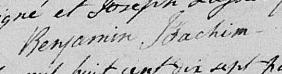 igné et Joseph
Benjamin Joachim
huit cent dix sept